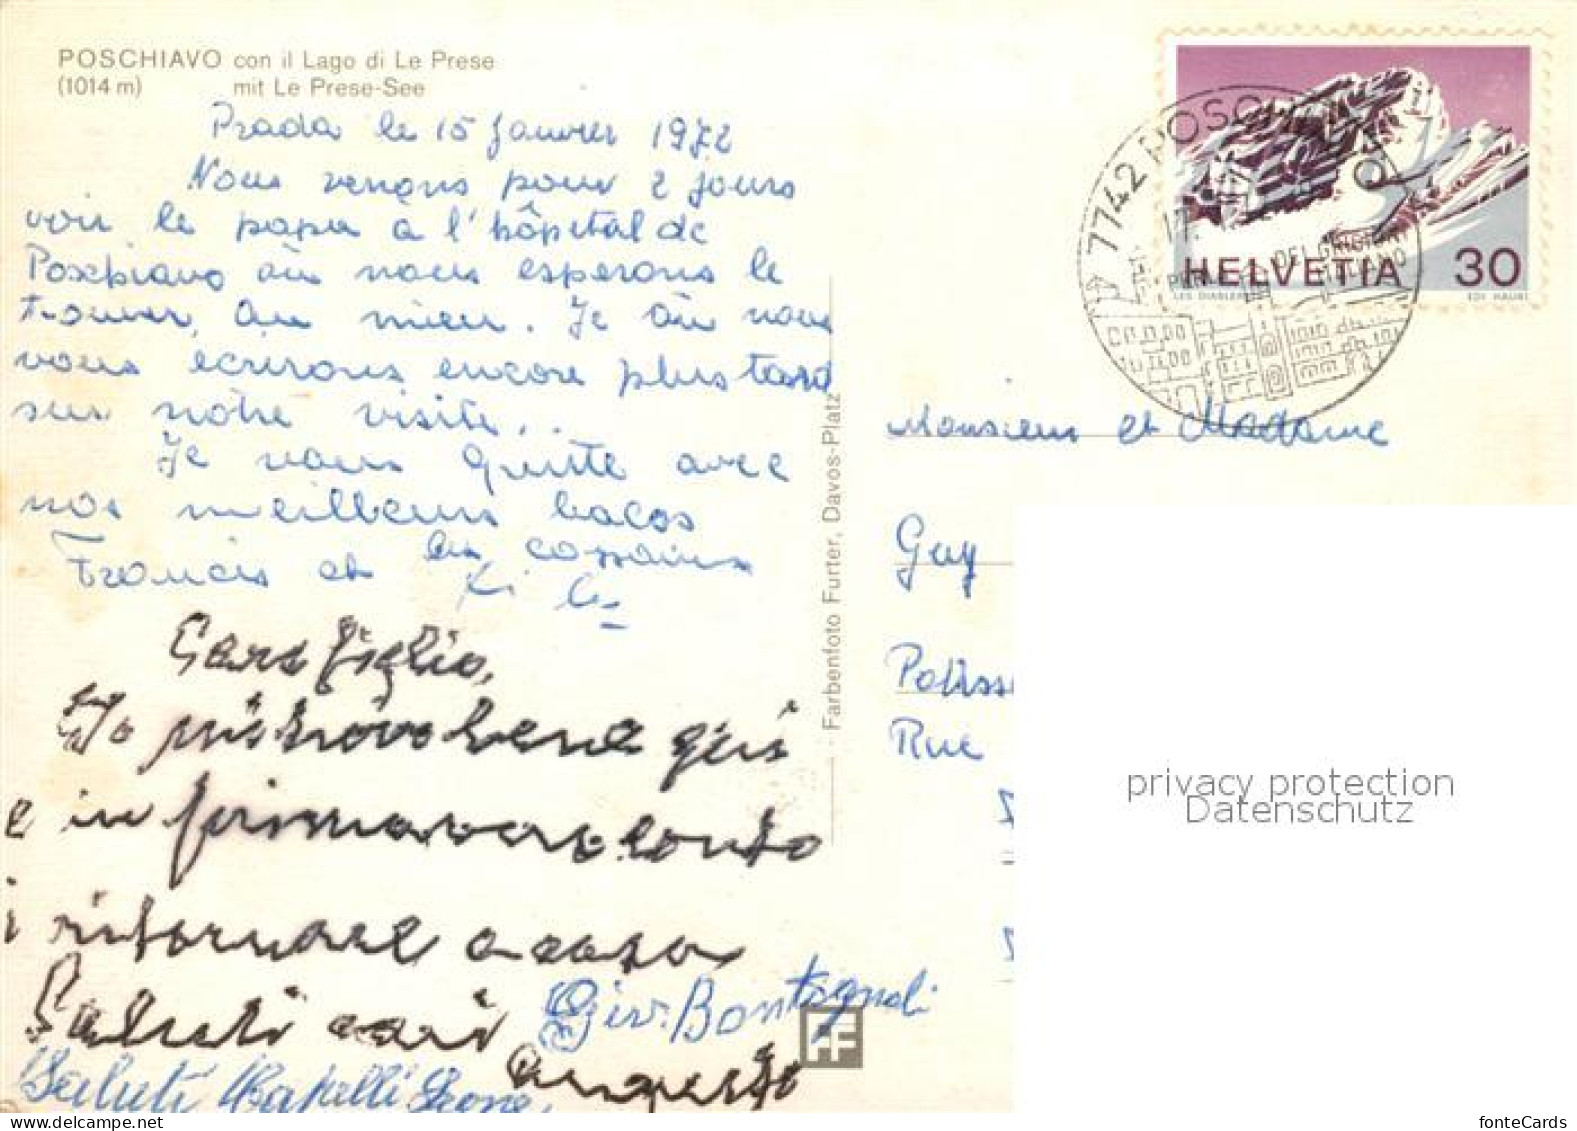 POSCHIAVO con il Lago di Le Prese
(1014 m) mit Le Prese-See
Prada le 15 Janvier 1972
Nous venons pour 2 jours
voir le papa a l'hôpital de
Poschiavo où nous esperons le
trouver, au mieu. Je où nous
vous écrirons encore plus tard
sur notre visite..
Je vous quitte avec
nos meilleurs bacos
Francis et les cossains
Caro figlio,
Io mi trovo bene qui
e in primavera conto
i ritornare a casa
Saluti cari
Giov. Bontognali
Augusto
Saluti Leone
Farbenfoto Furter, Davos-Platz
FF
7742 POSCHIAVO
17.
HELVETIA 30
LES DIABLERETS EDI HAURI
Monsieur et Madame
Guy
Poliss
Rue
privacy protection
Datenschutz
fonteCards